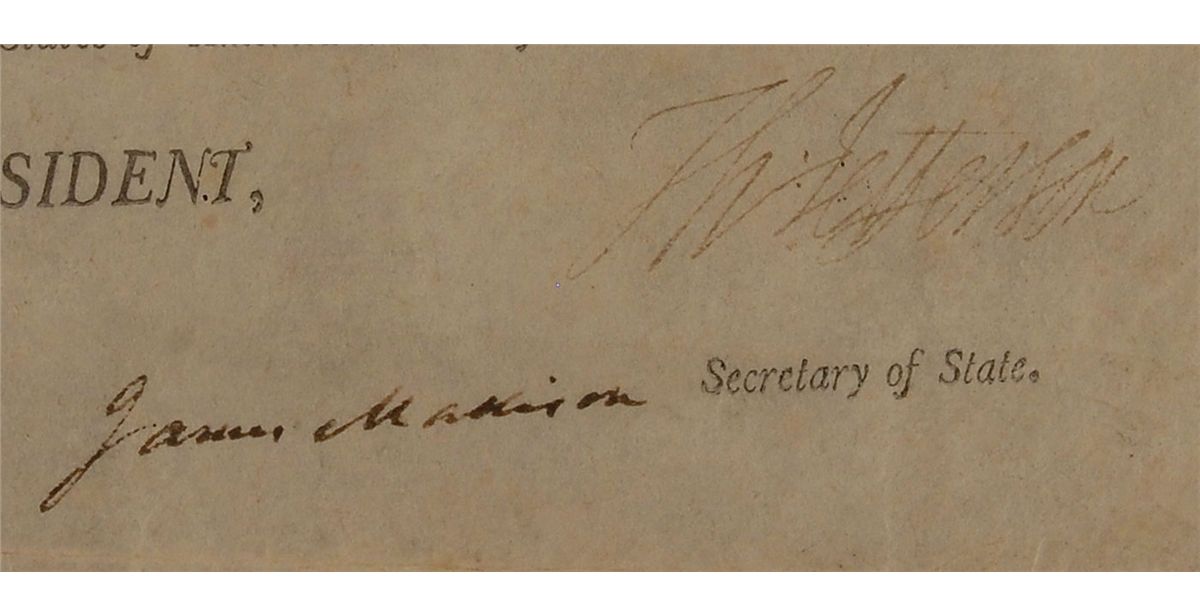 States of
Th: Jefferson
SIDENT,
Secretary of State.
James Madison